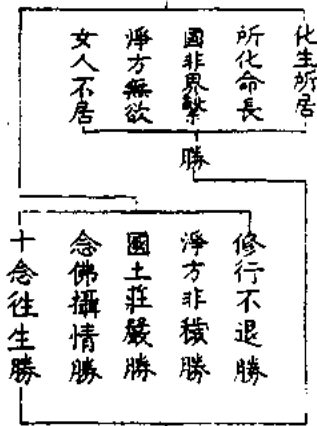 化生所居
所化命長
國非界繫
淨方無欲
女人不居
勝
修行不退勝
淨方非穢勝
國土莊嚴勝
念佛攝情勝
十念往生勝